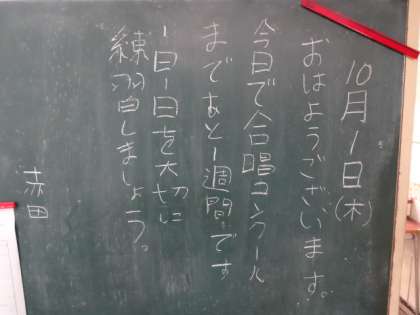 10月1日(木)
おはようございます。
今日で合唱コンクール
まであと1週間です
1日1日を大切に
練習しましょう。
赤田